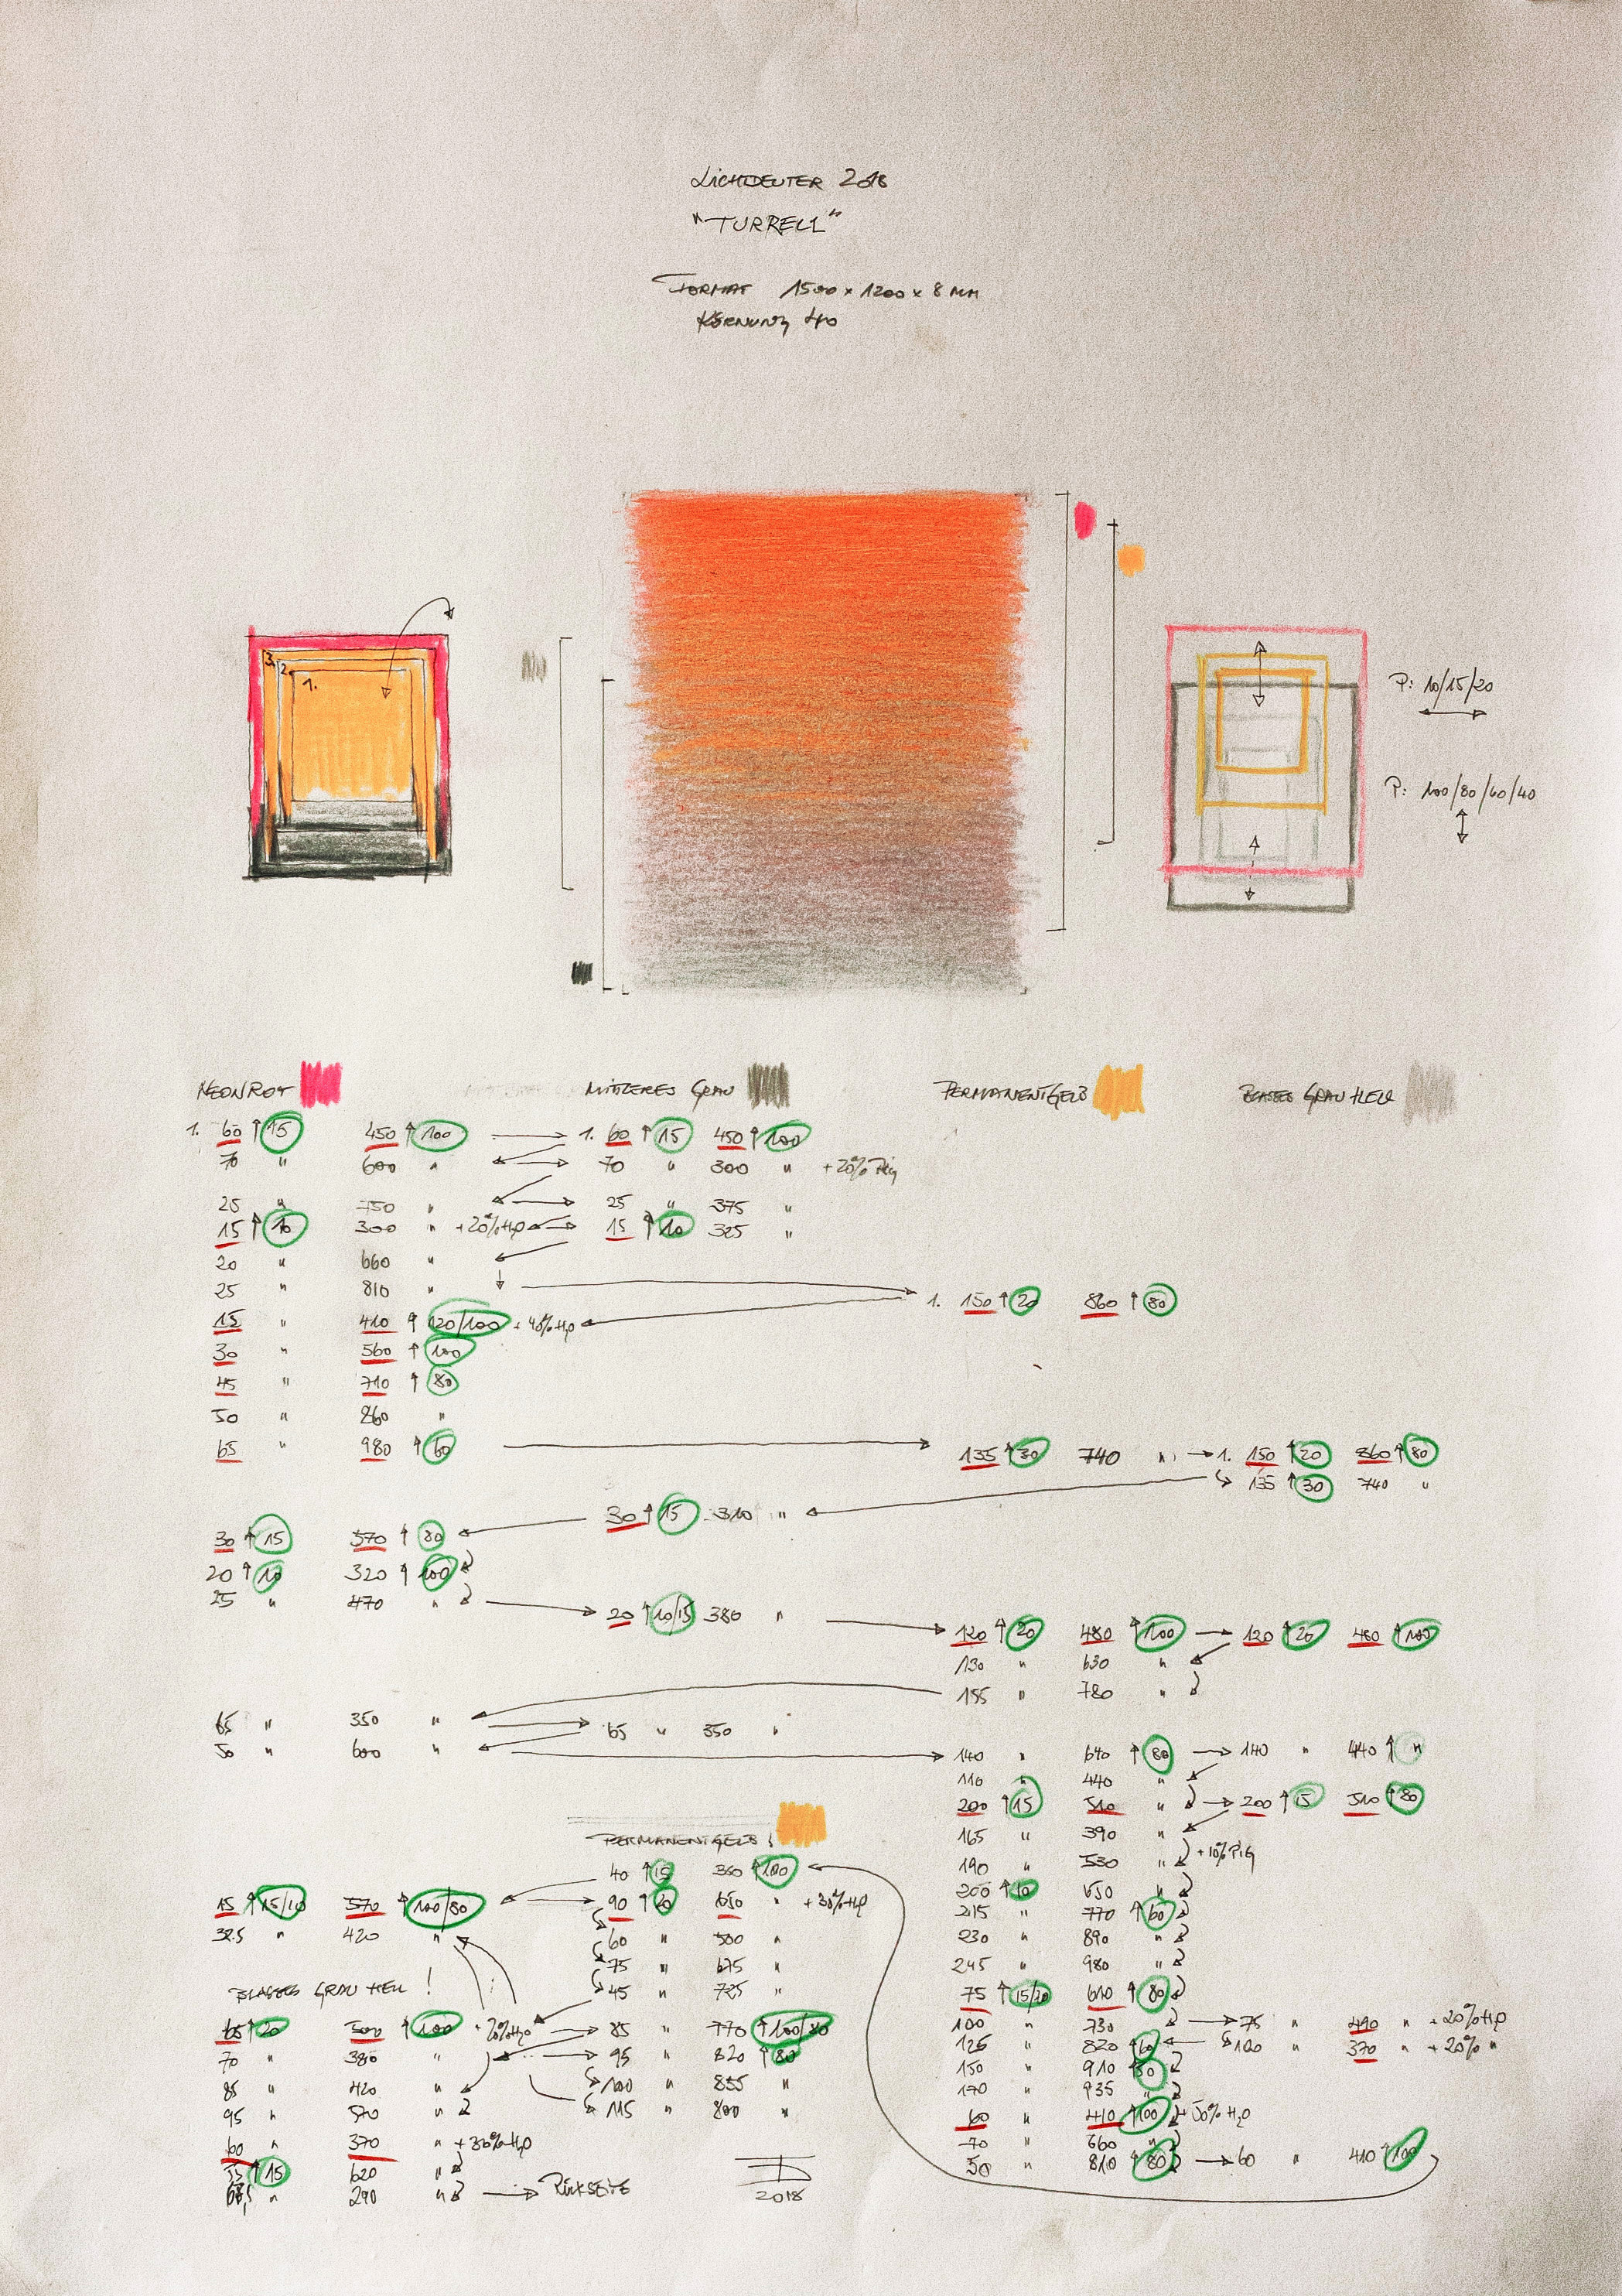 LICHTDEUTER 2018
"TURRELL"
FORMAT 1500 x 1200 x 8 MM
KÖRNUNG 40
3. 2. 1.
P: 10/15/20
P: 100/80/60/40
NEONROT MITTLERES GRAU PERMANENTGELB BLASSES GRAU HELL
1. 60 ↑ 15 450 ↑ 100 → 1. 60 ↑ 15 450 ↑ 100
70 " 600 " 70 " 300 " + 20% Pig
25 " 750 " 25 " 375 "
15 ↑ 10 300 " + 20% H2O 15 ↑ 10 325 "
20 " 660 "
25 " 810 " → 1. 150 ↑ 20 860 ↑ 80
15 " 410 ↑ 120/100 + 40% H2O
30 " 560 ↑ 100
45 " 710 ↑ 80
50 " 860 "
65 " 980 ↑ 60 → 135 ↑ 30 740 " → 1. 150 ↑ 20 860 ↑ 80
135 ↑ 30 740 "
30 ↑ 15 310 "
30 ↑ 15 570 ↑ 80
20 ↑ 10 320 ↑ 100
25 " 470 " → 20 ↑ 10/15 380 " → 120 ↑ 20 480 ↑ 100 → 120 ↑ 20 480 ↑ 100
130 " 630 "
155 " 780 "
65 " 350 " 65 " 350 "
50 " 600 " → 140 " 640 ↑ 80 → 140 " 440 ↑ "
110 " 440 "
200 ↑ 15 510 " → 200 ↑ 15 510 ↑ 80
165 " 390 "
PERMANENTGELB !
190 " 530 " + 10% PIG
40 ↑ 15 360 ↑ 100
200 ↑ 10 650 "
15 ↑ 15/10 570 ↑ 100/80 → 90 ↑ 20 650 " + 30% H2O
215 " 770 ↑ 60
32.5 " 420 " 60 " 500 " 230 " 890 "
75 " 675 " 245 " 980 "
BLASSES GRAU HELL ! 45 " 725 " 75 ↑ 15/20 610 ↑ 80
65 ↑ 20 500 ↑ 100 + 20% H2O → 85 " 770 ↑ 100/80 100 " 730 " → 75 " 490 " + 20% H2O
70 " 380 " → 95 " 820 ↑ 80 125 " 820 ↑ 60 100 " 370 " + 20% "
150 " 910 ↑ 50
85 " 420 " 100 " 855 " 170 " 935 "
95 " 570 " 115 " 800 " 60 " 410 ↑ 100 + 50% H2O
60 " 370 " + 30% H2O 70 " 660 "
55 ↑ 15 620 " 50 " 810 ↑ 80 → 60 " 410 ↑ 100
" 290 " → RÜCKSEITE
2018